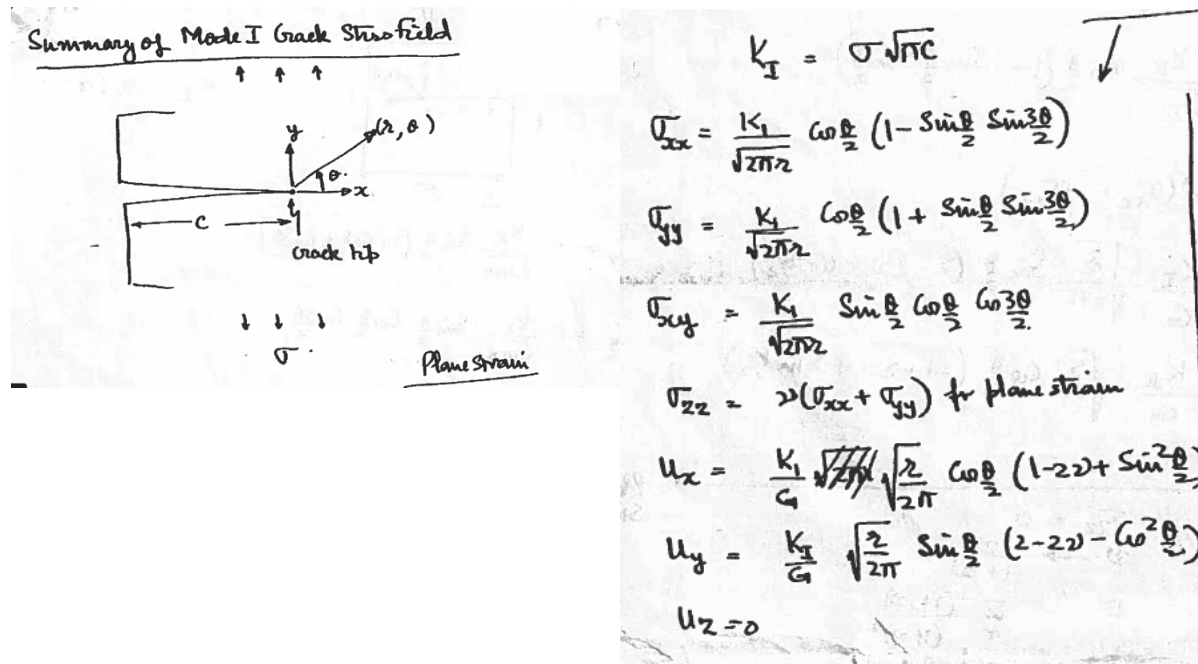 Summary of Mode I Crack Stress field
y
(r, θ)
θ.
x
C
Crack tip
σ.
Plane Strain
K_I = σ√πC
σ_xx = K_1/√2πr Cos θ/2 (1 - Sin θ/2 Sin 3θ/2)
σ_yy = K_1/√2πr Cos θ/2 (1 + Sin θ/2 Sin 3θ/2)
σ_xy = K_1/√2πr Sin θ/2 Cos θ/2 Cos 3θ/2
σ_zz = ν(σ_xx + σ_yy) for plane strain
u_x = K_1/G √r/2π Cos θ/2 (1-2ν + Sin² θ/2)
u_y = K_I/G √r/2π Sin θ/2 (2-2ν - Cos² θ/2)
u_z = 0